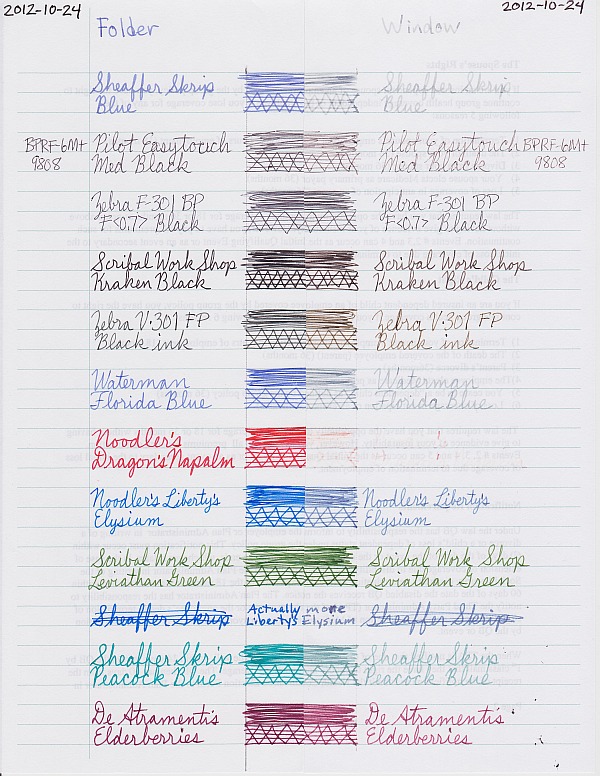 2012-10-24 2012-10-24
Folder Window
Sheaffer Skrip Sheaffer Skrip
Blue Blue
BPRF-6M+ Pilot Easytouch Pilot Easytouch BPRF-6M+
9808 Med Black Med Black 9808
Zebra F-301 BP Zebra F-301 BP
F<0.7> Black F<0.7> Black
Scribal Work Shop Scribal Work Shop
Kraken Black Kraken Black
Zebra V-301 FP Zebra V-301 FP
Black ink Black ink
Waterman Waterman
Florida Blue Florida Blue
Noodler's
Dragon's Napalm
Noodler's Liberty's Noodler's Liberty's
Elysium Elysium
Scribal Work Shop Scribal Work Shop
Leviathan Green Leviathan Green
Sheaffer Skrip Actually more Sheaffer Skrip
Liberty's Elysium
Sheaffer Skrip Sheaffer Skrip
Peacock Blue Peacock Blue
De Atramentis De Atramentis
Elderberries Elderberries